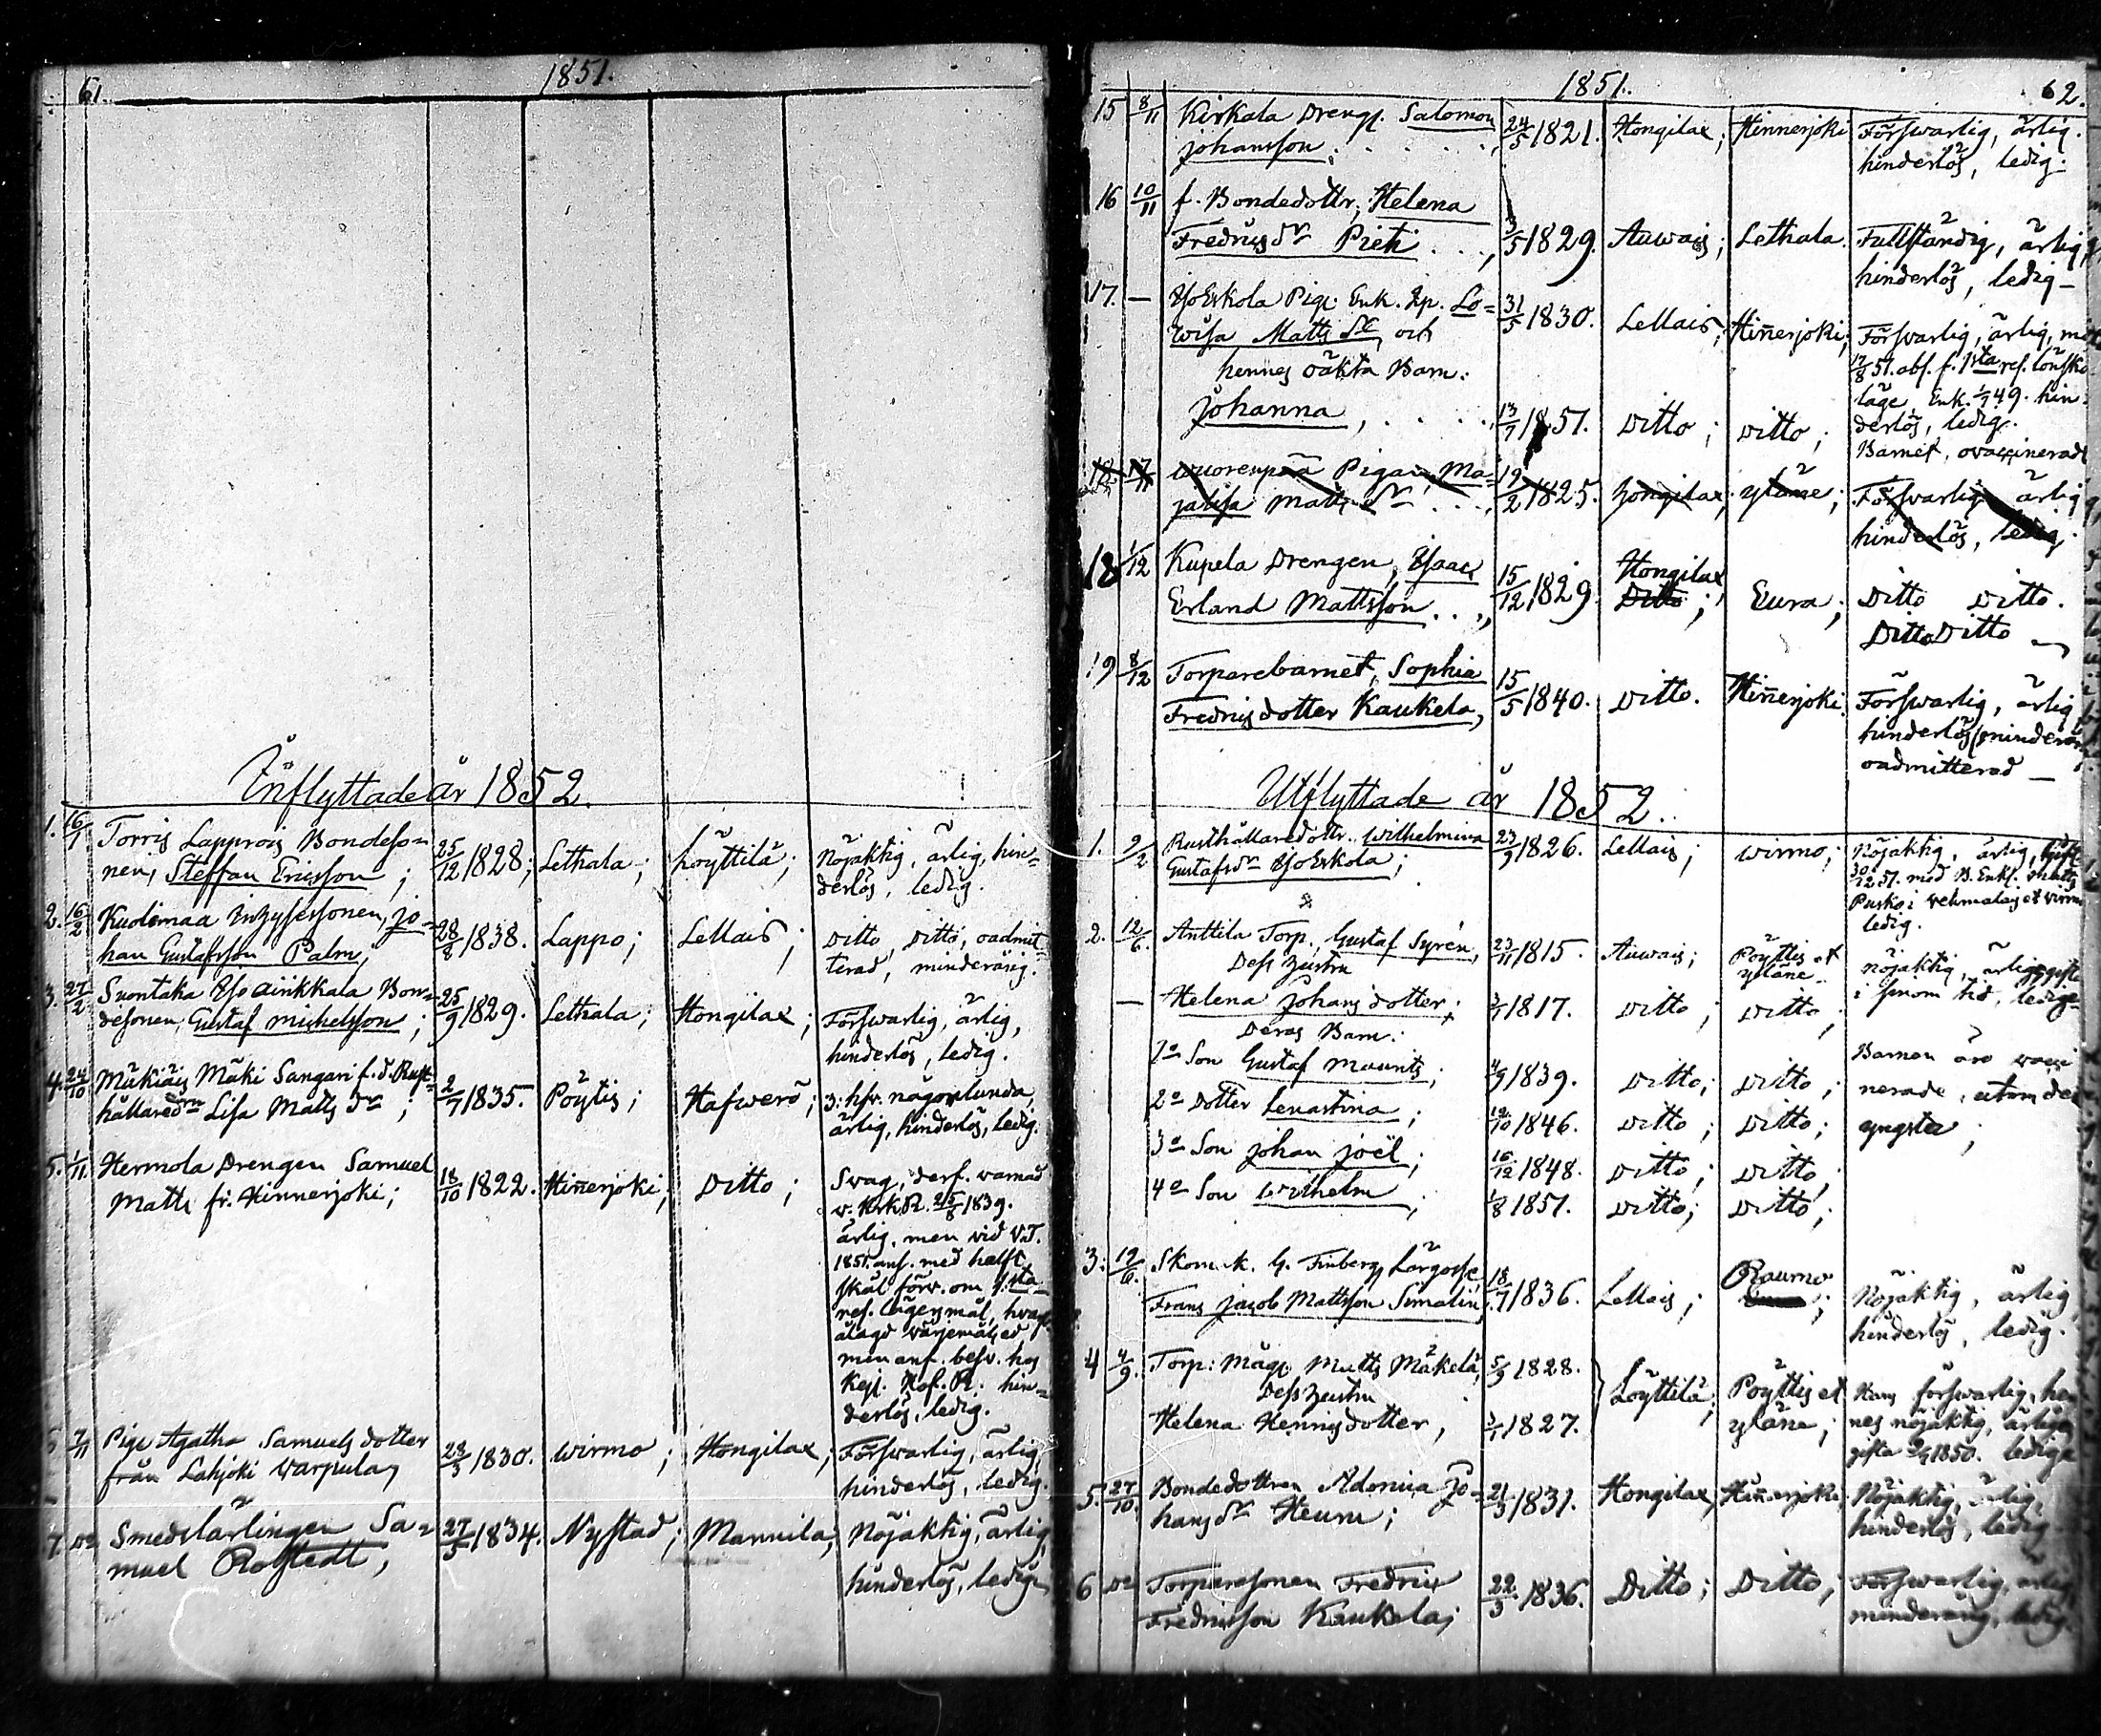 61. 1851.
Inflyttade år 1852.
1. 16/1 Torris Lapprois Bondeso=
nen, Steffan Ericsson; 25/12 1828; Lethala; Löyttilä; Nöjaktig, ärlig, hin=
derlös, ledig.
2. 16/2 Kuolimaa Jo=
han Gustafsson Palm; 28/8 1838. Lappo; Lellais; Ditto, Ditto, oadmit
terad, minderårig.
3. 27/2 Suontaka Bon=
desonen, Gustaf Michelsson; 25/9 1829. Lethala; Hongilax; Försvarlig, ärlig,
hinderlös, ledig.
4. 24/10 Mäki Sangari f.d. Rust=
hållaredrn Lisa Matts dr; 2/7 1835. Pöytis; Hafwerö; någorlunda,
ärlig, hinderlös, ledig.
5. 1/11. Hermola Drengen Samuel
Matts fr. Hinnerjoki; 18/10 1822. Hinerjoki; Ditto; Svag, derf. varnad
v. 25/8 1839.
ärlig, men vid V.T.
1851. anf. med hälft
skäl förv. om 1sta
res. lägersmål, hvarf
ålagd värjemåls ed,
men anf. besv. hos
Kejs. Hof. R. hin=
derlös, ledig.
6 7/11 Pig. Agatha Samuels dotter
från Lahjoki Varpula, 23/3 1830. Wirmo; Hongilax; Försvarlig, ärlig,
hinderlös, ledig.
7. Do Smedslärlingen Sa=
muel Rostedt, 27/5 1834. Nystad; Mannila; Nöjaktig, ärlig,
hinderlös, ledig
1851. 62.
15 8/11 Kirkala Dreng. Salomon
Johansson, 24/5 1821. Hongilax; Hinnerjoki Försvarlig, ärlig.
hinderlös, ledig.
16 10/11 f. Bondedottr, Helena
Fredrigs dr Pieti 3/5 1829. Auwais; Lethala. Fullständig, ärlig,
hinderlös, ledig
17. — Yso Eskola Pig. Enk. Lo=
wisa Matts dr och 31/5 1830. Lellais; Hinerjoki; Försvarlig, ärlig, men
17/8 51. abs. f. 1sta res. lönska
läge Enk. 49. hin
derlös, ledig.
hennes oäkta Barn:
Johanna, 13/7 1851. Ditto; Ditto; Barnet, ovaccinerad
18. 17/11 Wuorenpää Pigan, Ma=
jalisa Matts dr 19/2 1825. Hongilax; Yläne; Försvarlig ärlig
hinderlös, ledig.
18 1/12 Kupela Drengen, Isaac
Erland Mattsson 15/12 1829 Hongilax Ditto; Eura; Ditto Ditto.
Ditto Ditto
19 8/12 Torparebarnet, Sophia
Fredrigs dotter Kaukela, 15/5 1840. Ditto. Hinerjoki. Försvarlig, ärlig
hinderlös, minderår
oadmitterad
Utflyttade år 1852.
1. 9/2 Rusthållaredottr. Wilhelmina
Gustafs dr Yso Eskola; 23/9 1826. Lellais; Wirmo; Nöjaktig, ärlig,
30/12 51. med B. Enkl. Matts
Pusko i Vehmalais et Virmo
ledig.
2. 12/6. Anttila Torp. Gustaf Syrén, 23/11 1815. Auwais; Pöyttis et
Yläne. nöjaktig, ärlig, gift
i sinom tid, ledige
Dess hustru
— Helena Johans dotter; 3/1 1817. Ditto; Ditto;
Deras Barn:
1o Son Gustaf Maurits; 4/9 1839. Ditto; Ditto; Barnen äro vacci
nerade, utom den
yngsta;
2o Dotter Lenastina; 19/10 1846. Ditto; Ditto;
3o Son Johan Joël; 16/12 1848. Ditto; Ditto;
4o Son Wilhelm; 1/8 1851. Ditto; Ditto;
3. 19/6. Skom. M. G. Finbergs Lärgosse
Frans Jacob Mattsson Simalin, 18/7 1836. Lellais; Raumo; Nöjaktig, ärlig,
hinderlös, ledig.
4 4/9. Torp: Måg. Matts Mäkelä, 5/9 1828. Löyttilä; Pöyttis et
Yläne; Hans försvarlig, hen
nes nöjaktig, ärliga
gifta 1850. ledige
Dess hustru
Helena Henrigs dotter, 3/1 1827.
5. 27/10. Bondedottren Adonia Jo=
hans dr Heurn; 21/3 1831. Hongilax, Hinerjoki Nöjaktig, ärlig,
hinderlös, ledig
6 Do Torparesonen Fredric
Fredricsson Kaukela; 22/3 1836. Ditto; Ditto; Försvarlig, ärlig
minderårig, ledig.